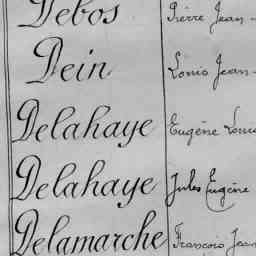 Debos Pierre Jean
Dein Louis Jean
Delahaye Eugène Louis
Delahaye Jules Eugène
Delamarche François Jean